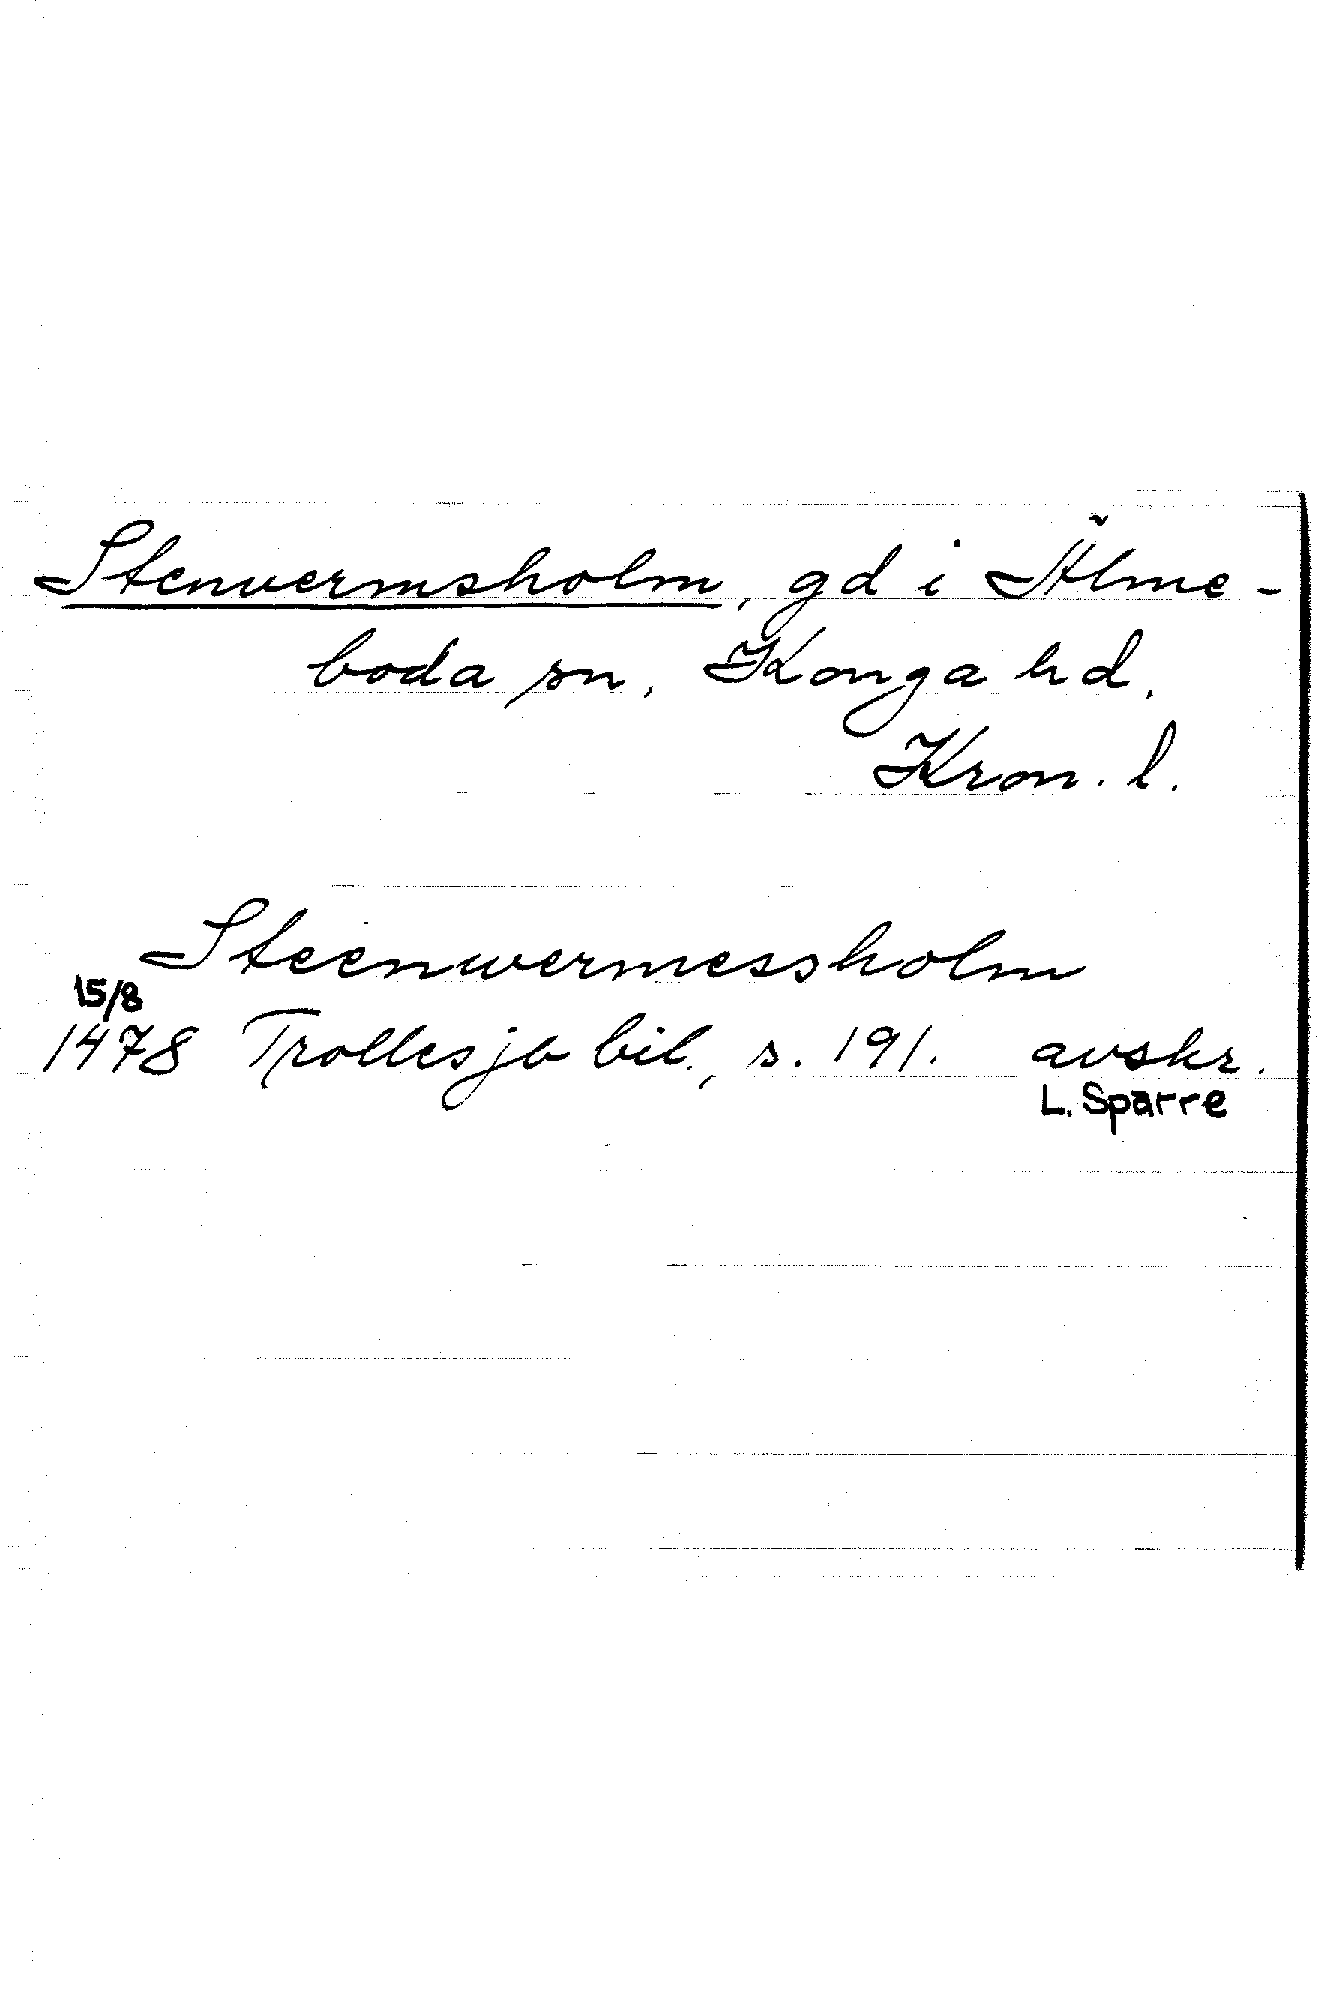 Stenvermsholm, gd i Älme-
boda sn, Konga hd,
Kron. l.
Steenwermessholm
15/8
1478 Trollesjö bil., s. 191. avskr.
L. Sparre